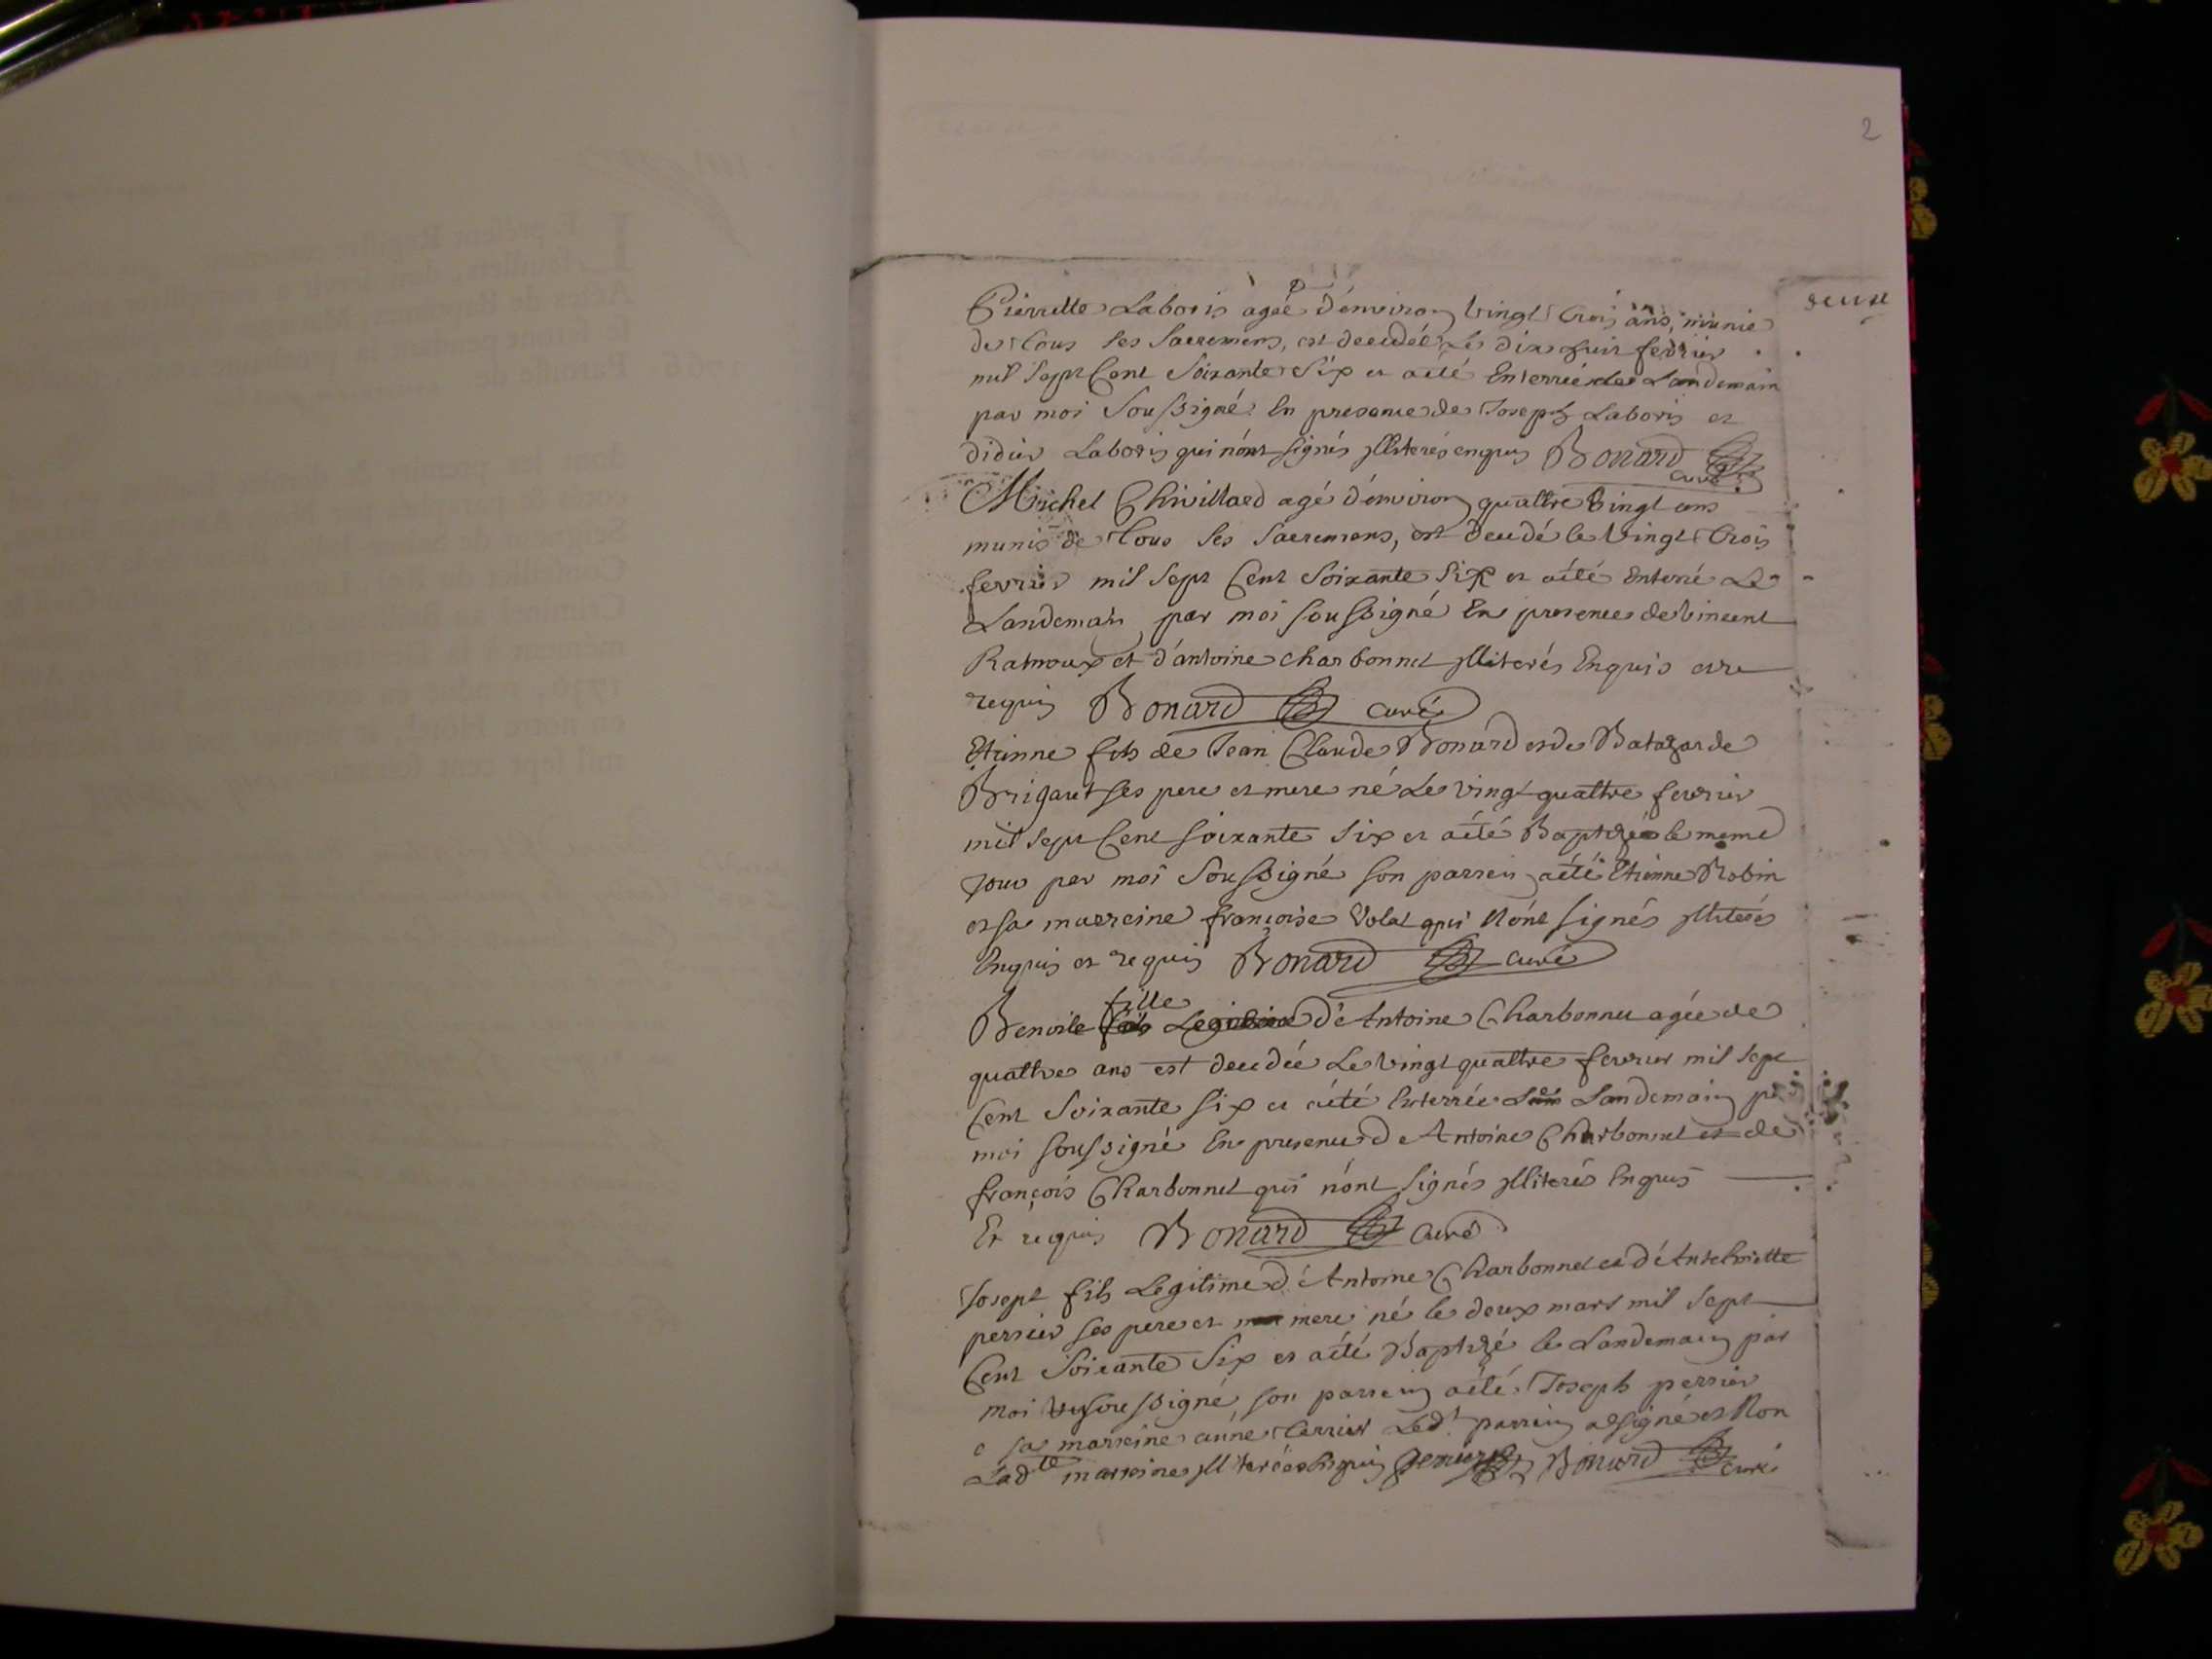 2
deuxe
Pierrette Laboris agée d'environ vingt trois ans, munie
de tous ses sacremens, est decedée le dix huit fevrier
mil sept cent soixante six et aété enterrée le Landemain
par moi soussigné en presence de Joseph Laboris et
didier Laboris qui n'ont signés illiterés enquis Bonard
curé
Michel Chivillard agé d'environ quattre vingt ans
munis de tous ses sacremens, est decedé le vingt trois
fevrier mil sept cent soixante six et aété enterré Le
Landemain par moi soussigné en presence de vincent
et d'antoine charbonnet illiterés enquis et re
requis Bonard curé
Etienne fils de Jean Claude Bonard et de Batazarde
Brigaut ses pere et mere né Le vingt quattre fevrier
mil sept cent soixante six et aété Baptizé le meme
jour par moi soussigné son parrein aété Etienne Robin
et sa marreine françoise Volat qui n'ont signés illiterés
enquis et requis Bonard curé
fille
Benoite d'Antoine Charbonnet agée de
quattre ans est decedée Le vingt quattre fevrier mil sept
cent soixante six et aété enterrée Le Landemain par
moi soussigné en presence d'Antoine Charbonnet et de
françois Charbonnet qui n'ont signés illiterés enquis
Et requis Bonard curé
Josept fils Legitime d'Antoine Charbonnet et d'Anthelmette
perrier ses pere et mere né le deux mars mil sept
cent soixante six et aété Baptizé le Landemain par
moi soussigné, son parrein aété Joseph perrier
e sa marreine anne terrier Led.t parrein a signé et Non
Lad.te marreine illiterée enquis perrier Bonard curé